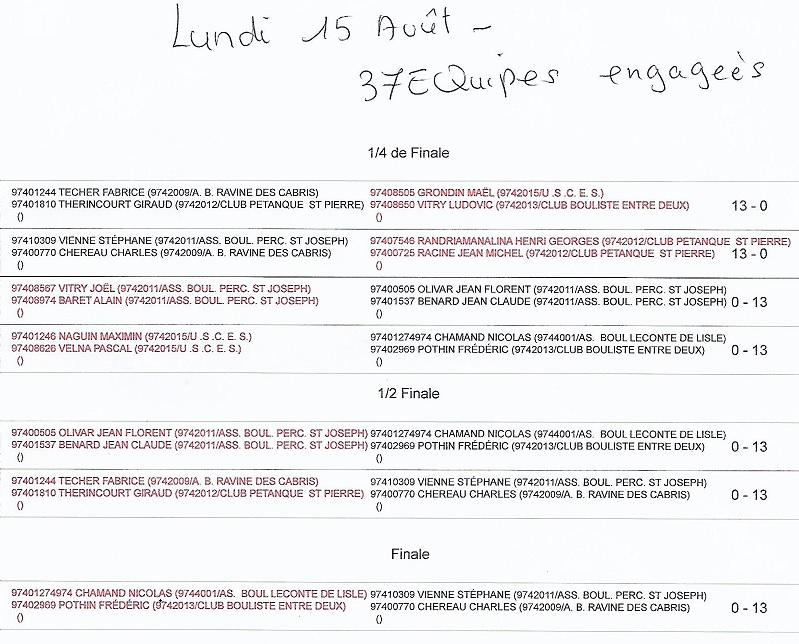 Lundi 15 Août -
37 EQuipes engageès
1/4 de Finale
97401244 TECHER FABRICE (9742009/A. B. RAVINE DES CABRIS) 97408505 GRONDIN MAËL (9742015/U .S .C. E. S.)
97401810 THERINCOURT GIRAUD (9742012/CLUB PETANQUE ST PIERRE) 97408650 VITRY LUDOVIC (9742013/CLUB BOULISTE ENTRE DEUX) 13 - 0
() ()
97410309 VIENNE STÉPHANE (9742011/ASS. BOUL. PERC. ST JOSEPH) 97407546 RANDRIAMANALINA HENRI GEORGES (9742012/CLUB PETANQUE ST PIERRE)
97400770 CHEREAU CHARLES (9742009/A. B. RAVINE DES CABRIS) 97400725 RACINE JEAN MICHEL (9742012/CLUB PETANQUE ST PIERRE) 13 - 0
() ()
97408567 VITRY JOËL (9742011/ASS. BOUL. PERC. ST JOSEPH) 97400505 OLIVAR JEAN FLORENT (9742011/ASS. BOUL. PERC. ST JOSEPH)
97408974 BARET ALAIN (9742011/ASS. BOUL. PERC. ST JOSEPH) 97401537 BENARD JEAN CLAUDE (9742011/ASS. BOUL. PERC. ST JOSEPH) 0 - 13
() ()
97401246 NAGUIN MAXIMIN (9742015/U .S .C. E. S.) 97401274974 CHAMAND NICOLAS (9744001/AS. BOUL LECONTE DE LISLE)
97408626 VELNA PASCAL (9742015/U .S .C. E. S.) 97402969 POTHIN FRÉDÉRIC (9742013/CLUB BOULISTE ENTRE DEUX) 0 - 13
() ()
1/2 Finale
97400505 OLIVAR JEAN FLORENT (9742011/ASS. BOUL. PERC. ST JOSEPH) 97401274974 CHAMAND NICOLAS (9744001/AS. BOUL LECONTE DE LISLE)
97401537 BENARD JEAN CLAUDE (9742011/ASS. BOUL. PERC. ST JOSEPH) 97402969 POTHIN FRÉDÉRIC (9742013/CLUB BOULISTE ENTRE DEUX) 0 - 13
() ()
97401244 TECHER FABRICE (9742009/A. B. RAVINE DES CABRIS) 97410309 VIENNE STÉPHANE (9742011/ASS. BOUL. PERC. ST JOSEPH)
97401810 THERINCOURT GIRAUD (9742012/CLUB PETANQUE ST PIERRE) 97400770 CHEREAU CHARLES (9742009/A. B. RAVINE DES CABRIS) 0 - 13
() ()
Finale
97401274974 CHAMAND NICOLAS (9744001/AS. BOUL LECONTE DE LISLE) 97410309 VIENNE STÉPHANE (9742011/ASS. BOUL. PERC. ST JOSEPH)
97402969 POTHIN FRÉDÉRIC (9742013/CLUB BOULISTE ENTRE DEUX) 97400770 CHEREAU CHARLES (9742009/A. B. RAVINE DES CABRIS) 0 - 13
() ()